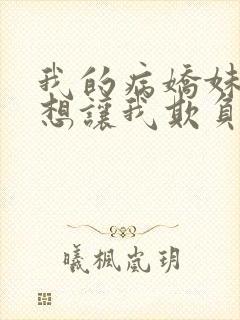 我的病嬌妹
想讓我欺負
曦楓嵐玥